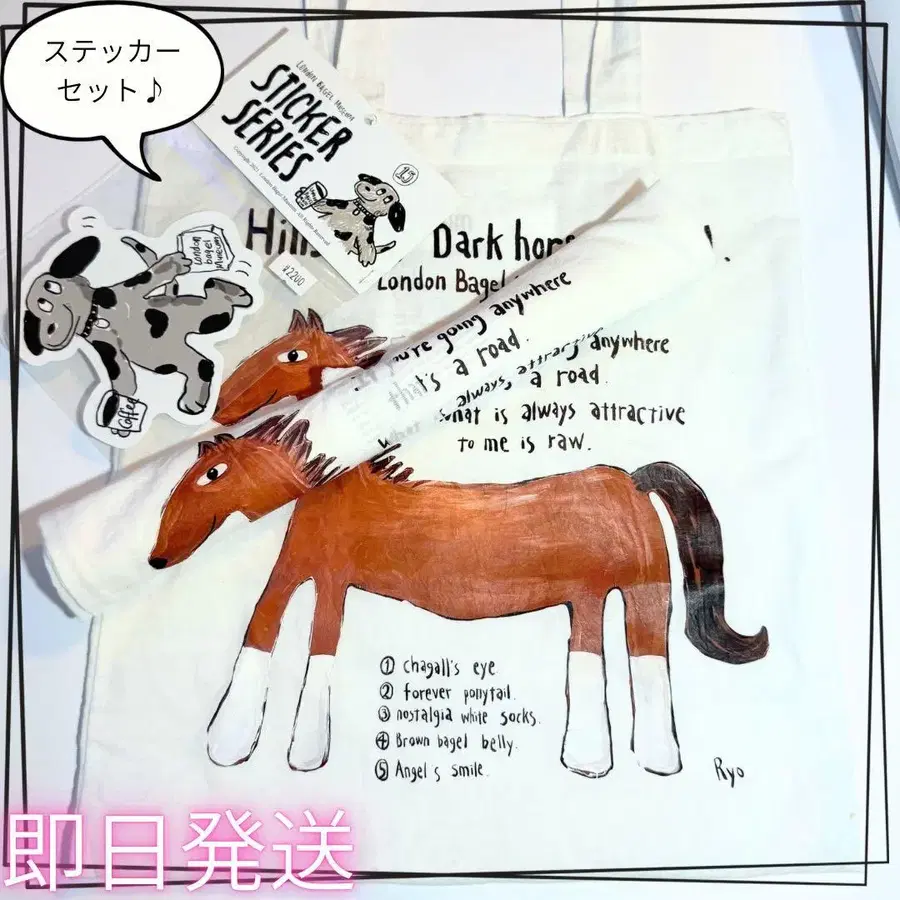 ステッカー
セット♪
LONDON BAGEL MUSEUM
STICKER
SERIES
Copyright 2021. London Bagel Museum. All Rights Reserved.
15
London
bagel
Museum
Coffee
₩2200
Dark
London Bagel
you're going anywhere
it's a road.
always, attractive
anywhere
a road.
what is always attractive
to me is raw.
① chagall's eye
② forever ponytail.
③ nostalgia white socks.
④ Brown bagel belly.
⑤ Angel's smile.
Ryo
即日発送